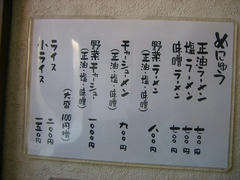 めにゅう
正油ラーメン 七〇〇
塩ラーメン 七〇〇
味噌ラーメン 七〇〇
野菜ラーメン 八〇〇
(正油・塩・味噌)
チャーシューメン 九〇〇
(正油・塩・味噌)
野菜チャーシュー 1000
(正油・塩・味噌)
(大盛 100円増)
ライス 二〇〇
小ライス 一五〇